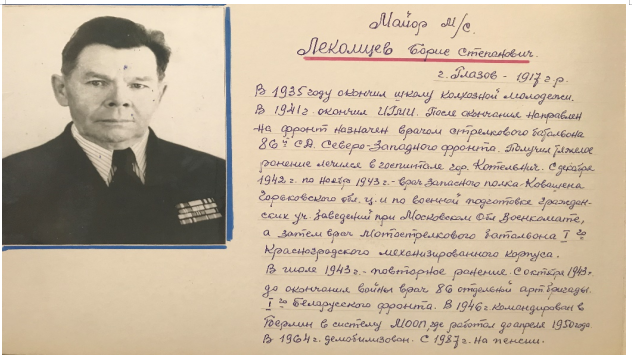 Майор м/с.
Лекомцев Борис Степанович.
г. Глазов - 1917 г.р.
В 1935 году окончил школу колхозной молодежи.
В 1941 г. окончил ИГМИ. После окончания направлен
на фронт назначен врачом стрелкового батальона
86ой СД. Северо-Западного фронта. Получил тяжелое
ранение лечился в госпитале гор. Котельнич. С декабря
1942 г. по ноябрь 1943 г - врач запасного полка
Горьковского обл. ц. и по военной подготовке граждан-
ских уч. заведений при Московском Обл Военкомате,
а затем врач Мотострелкового батальона I го
Красноградского механизированного корпуса.
В июле 1943 г. - повторное ранение. С октября 1943 г.
до окончания войны врач 86 отдельной арт бригады.
I го Беларусского фронта. В 1946 г командирован в
Берлин в систему МООП, где работал до апреля 1950 года.
В 1964 г. демобилизован. С 1987 г. на пенсии.